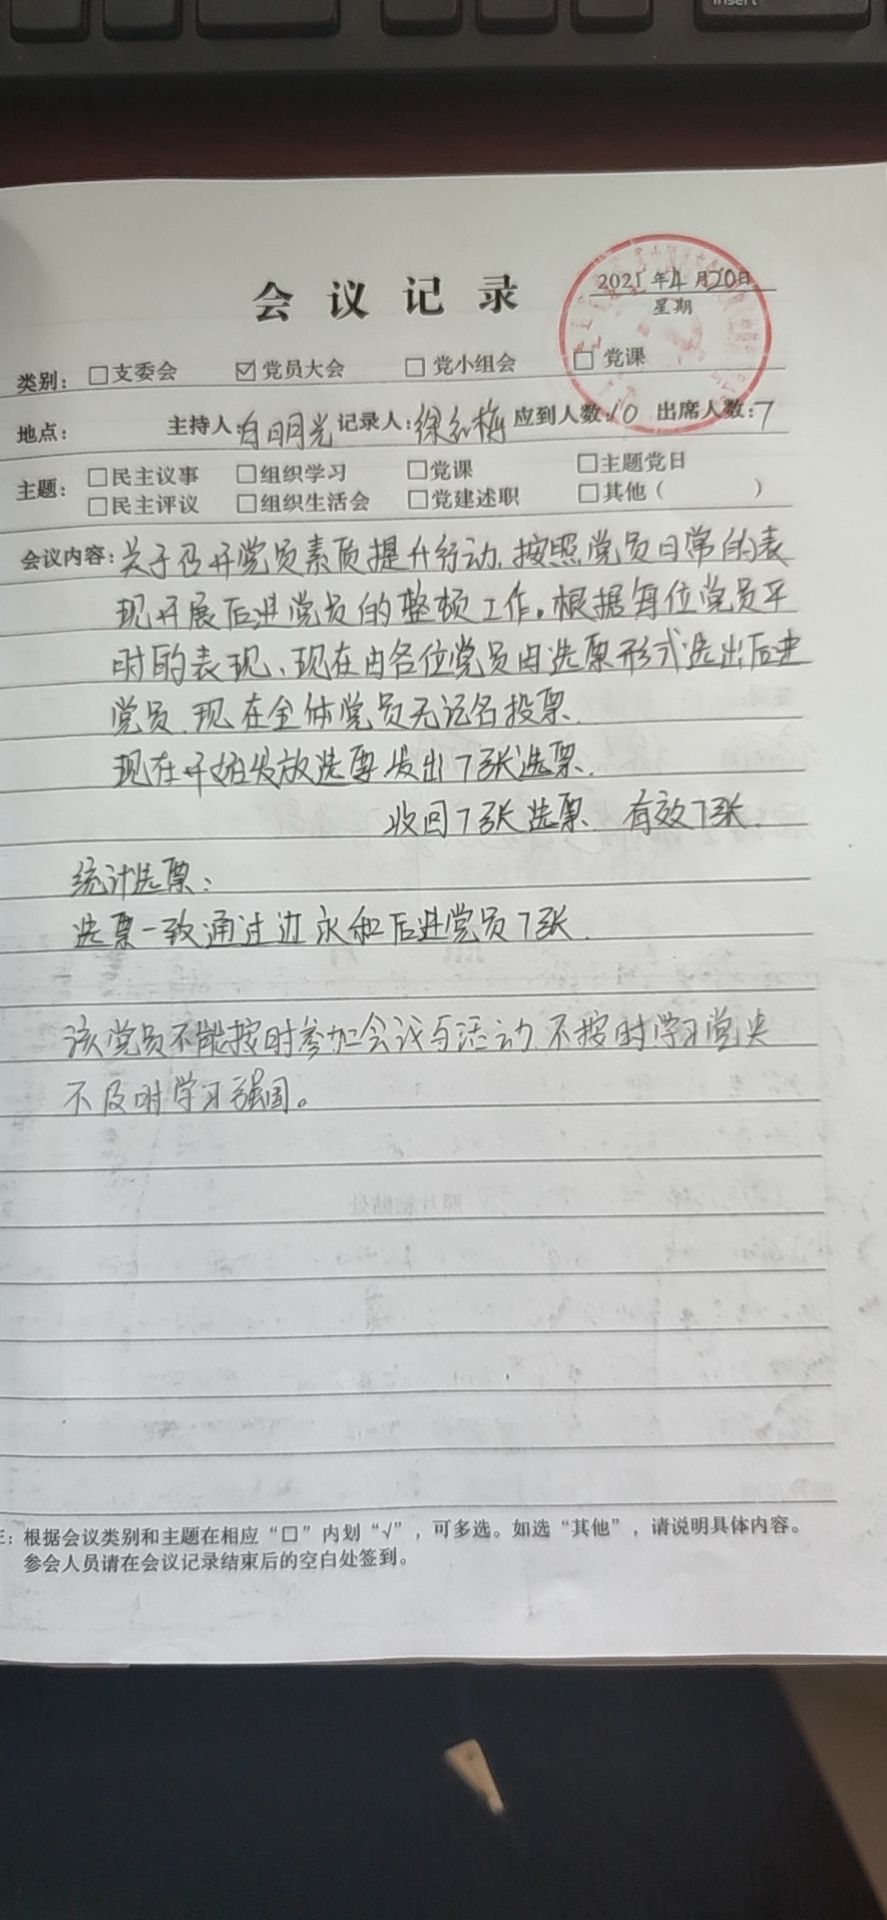 insert
会议记录
2021年4月20日
星期
类别: □支委会 ☑党员大会 □党小组会 □党课
地点: 主持人:白明光 记录人:徐红梅 应到人数:10 出席人数:7
主题: □民主议事 □组织学习 □党课 □主题党日
□民主评议 □组织生活会 □党建述职 □其他( )
会议内容:关于召开党员素质提升行动,按照党员日常的表
现开展后进党员的整顿工作。根据每位党员平
时的表现、现在由各位党员由选票形式选出后进
党员.现在全体党员无记名投票.
现在开始发放选票.发出7张选票.
收回7张选票、有效7张.
统计选票:
选票一致通过边永和后进党员7张.
该党员不能按时参加会议与活动.不按时学习党史
不及时学习强国。
: 根据会议类别和主题在相应“□”内划“√”,可多选。如选“其他”,请说明具体内容。
参会人员请在会议记录结束后的空白处签到。